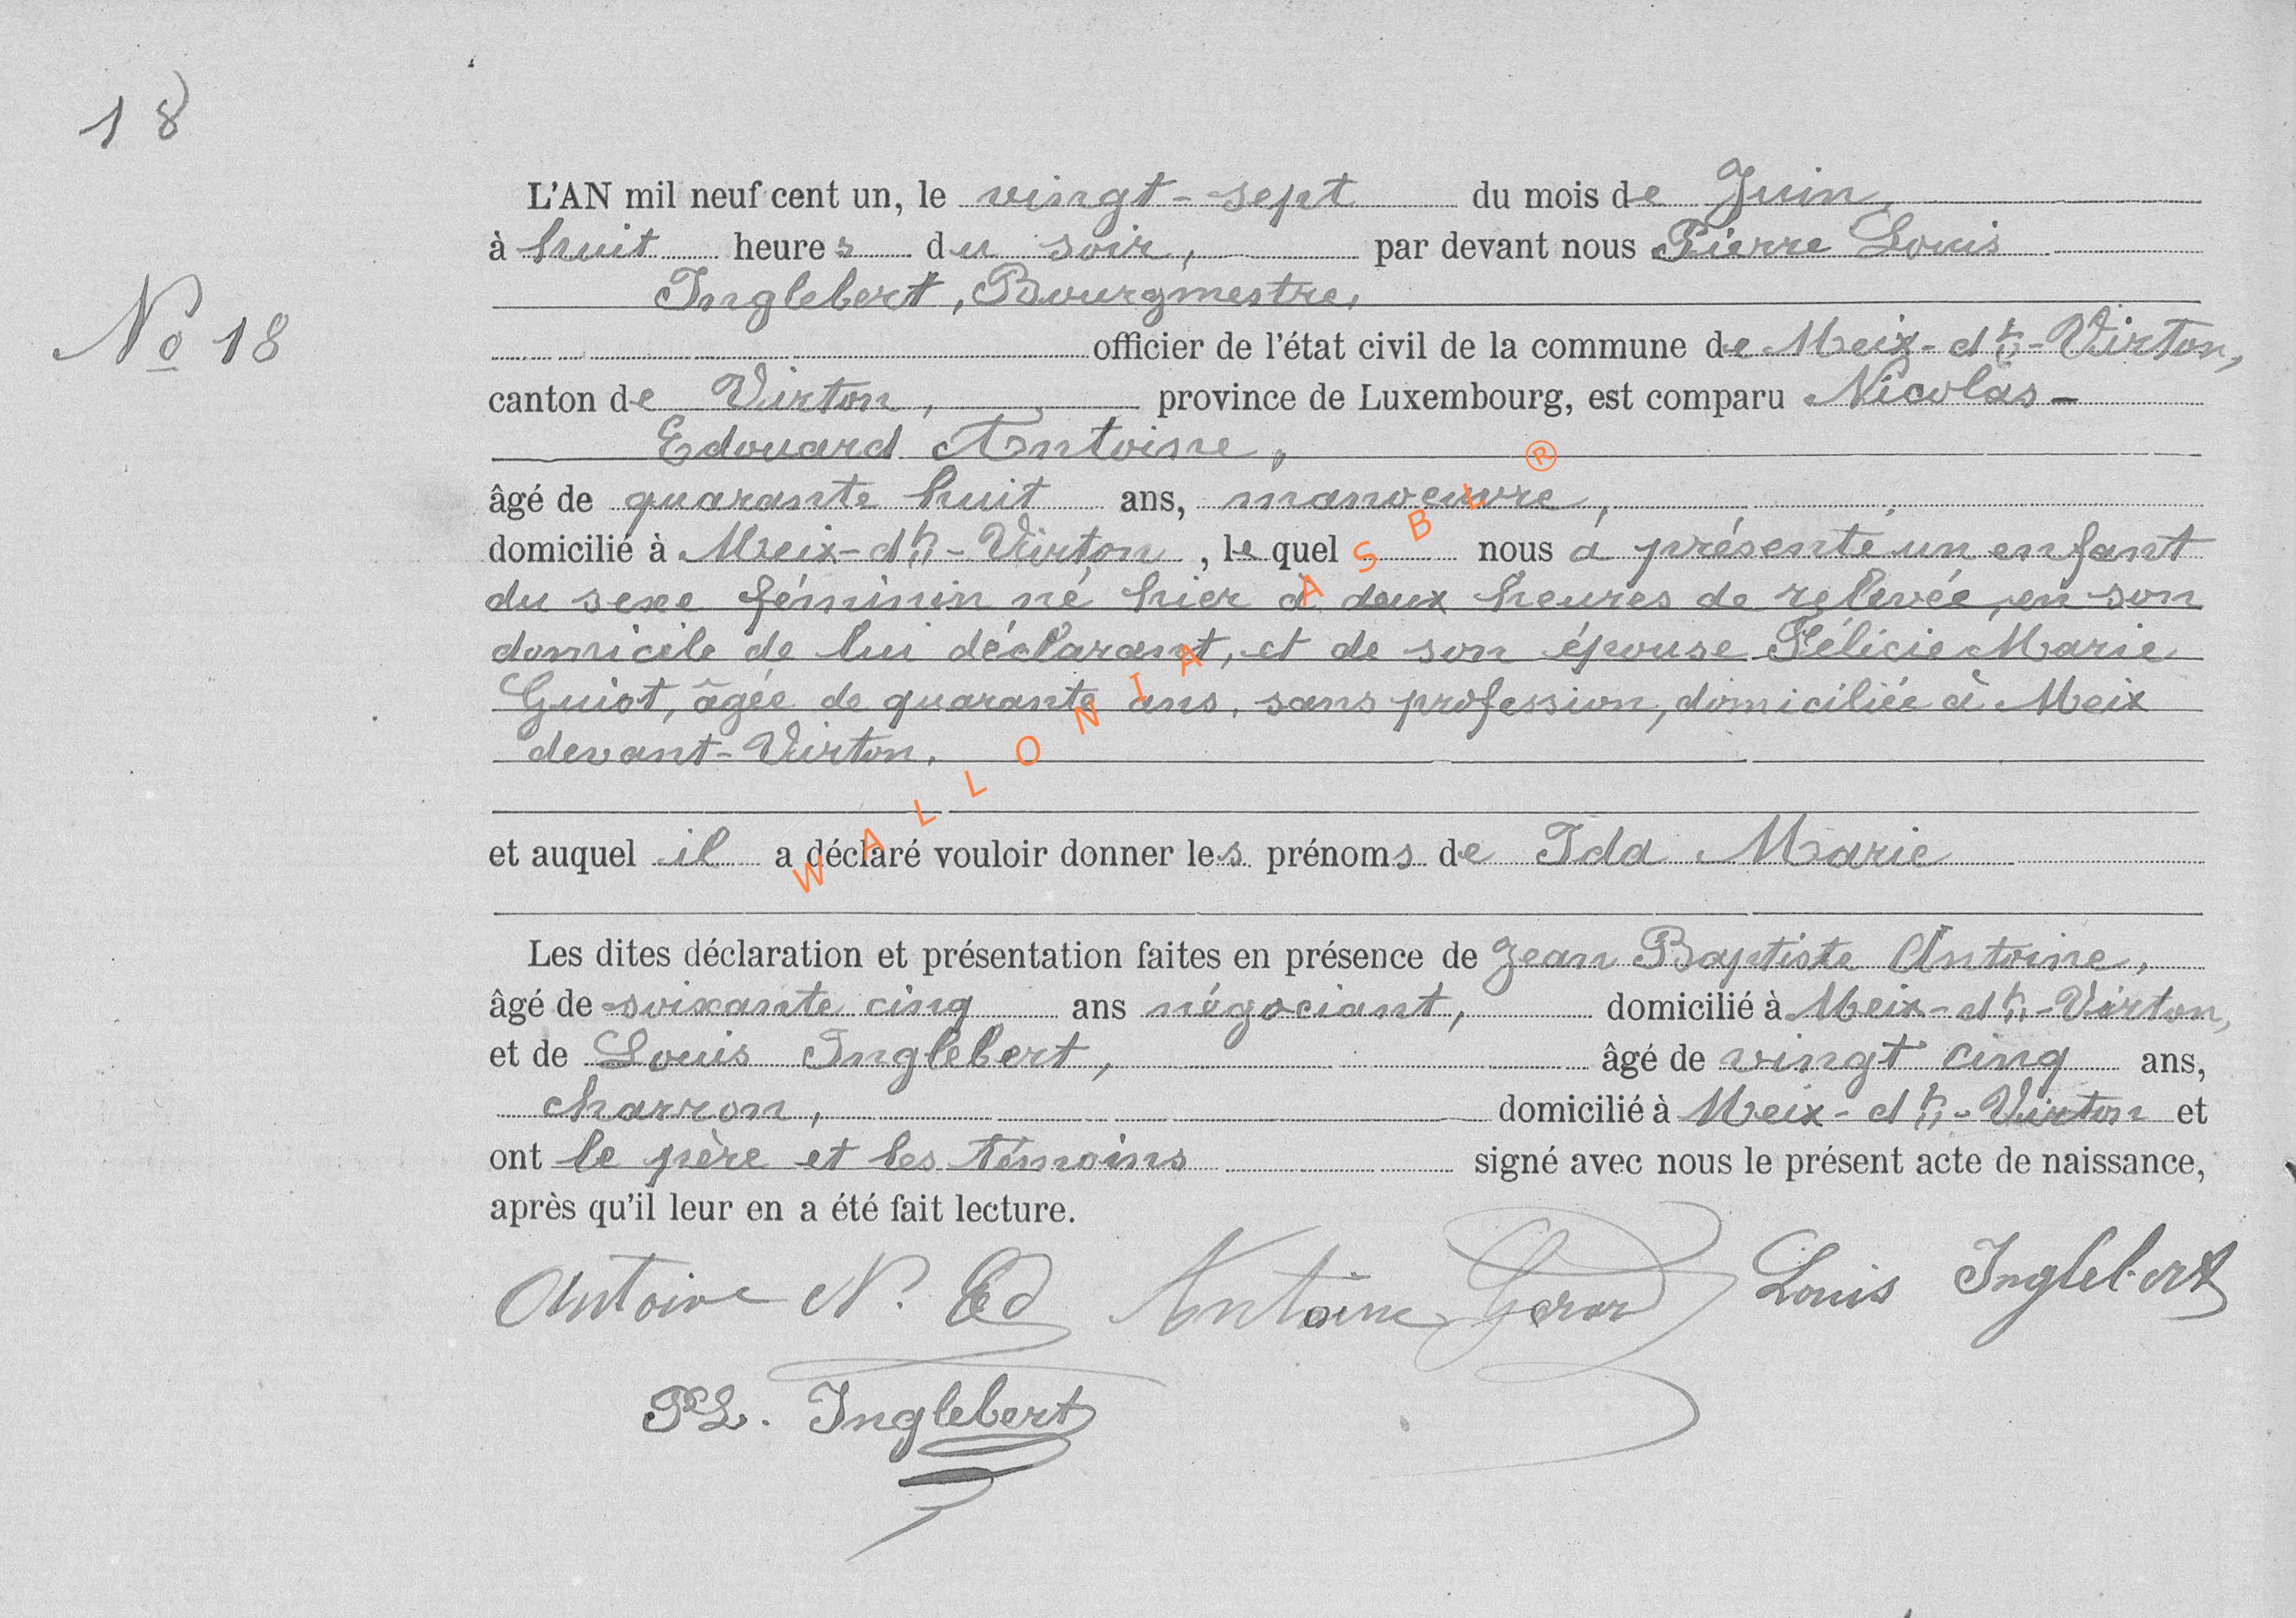 18
L'AN mil neuf cent un, le vingt-sept du mois de Juin,
à huit heures du soir, par devant nous Pierre Louis
Inglebert, Bourgmestre,
No 18
officier de l'état civil de la commune de Meix-dt-Virton,
canton de Virton, province de Luxembourg, est comparu Nicolas-
Edouard Antoine,
âgé de quarante huit ans, manoeuvre,
domicilié à Meix-dt-Virton, le quel nous a présenté un enfant
du sexe féminin né hier à deux heures de relevée, en son
domicile de lui déclarant, et de son épouse Félicie Marie
Guiot, âgée de quarante ans, sans profession, domiciliée à Meix
devant-Virton.
et auquel il a déclaré vouloir donner les prénoms de Ida Marie
Les dites déclaration et présentation faites en présence de Jean Baptiste Antoine,
âgé de soixante cinq ans négociant, domicilié à Meix-dt-Virton,
et de Louis Inglebert, âgé de vingt cinq ans,
charron, domicilié à Meix-dt-Virton et
ont le père et les témoins signé avec nous le présent acte de naissance,
après qu'il leur en a été fait lecture.
Antoine N. Ed Antoine Gerard Louis Inglebert
P.L. Inglebert
WALLONIA ASBL ®